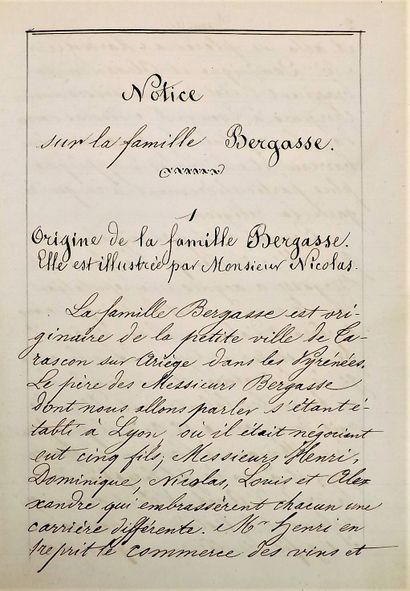 Notice
sur la famille Bergasse.
1
Origine de la famille Bergasse.
Elle est illustrée par Monsieur Nicolas.
La famille Bergasse est ori-
ginaire de la petite ville de Ta-
rascon sur Ariège dans les Pyrénées.
Le père des Messieurs Bergasse
dont nous allons parler s'étant é-
tabli à Lyon, où il était négociant
eut cinq fils, Messieurs Henri,
Dominique, Nicolas, Louis et Alex-
xandre qui embrassèrent chacun une
carrière différente. Mr Henri en
treprit le commerce des vins et